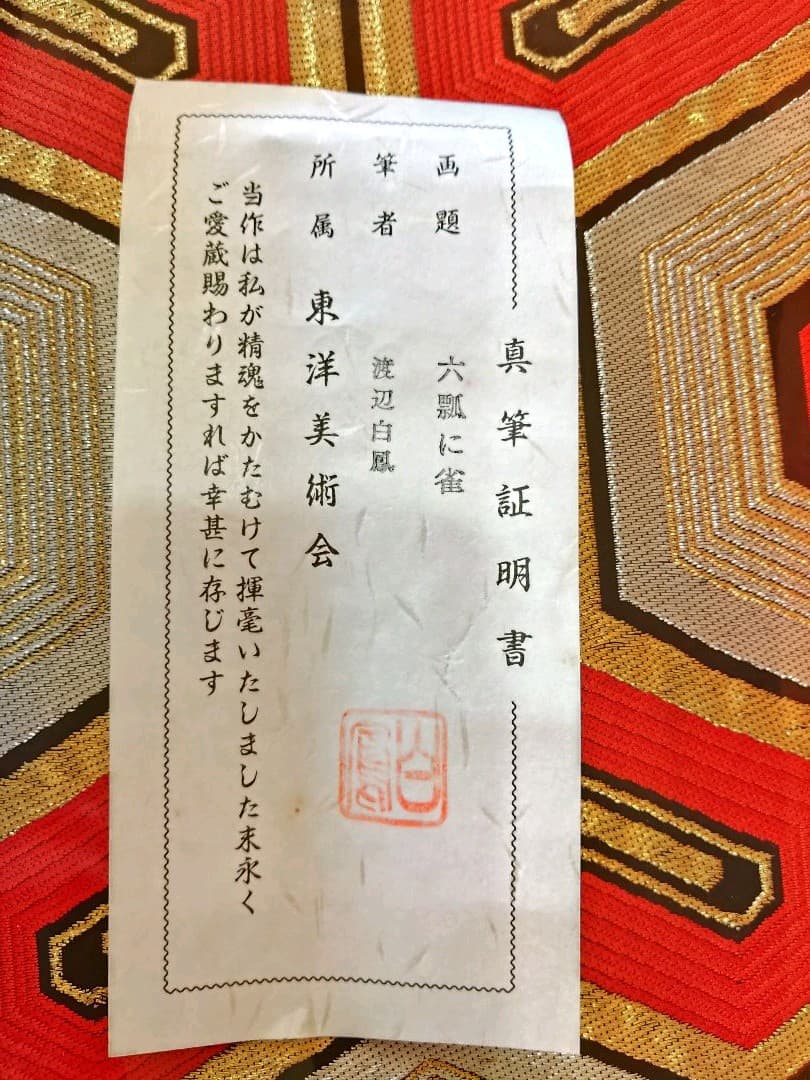 真筆証明書
画題 六瓢に雀
筆者 渡辺白鳳
所属 東洋美術会
当作は私が精魂をかたむけて揮毫いたしました末永く
ご愛蔵賜わりますれば幸甚に存じます
白鳳